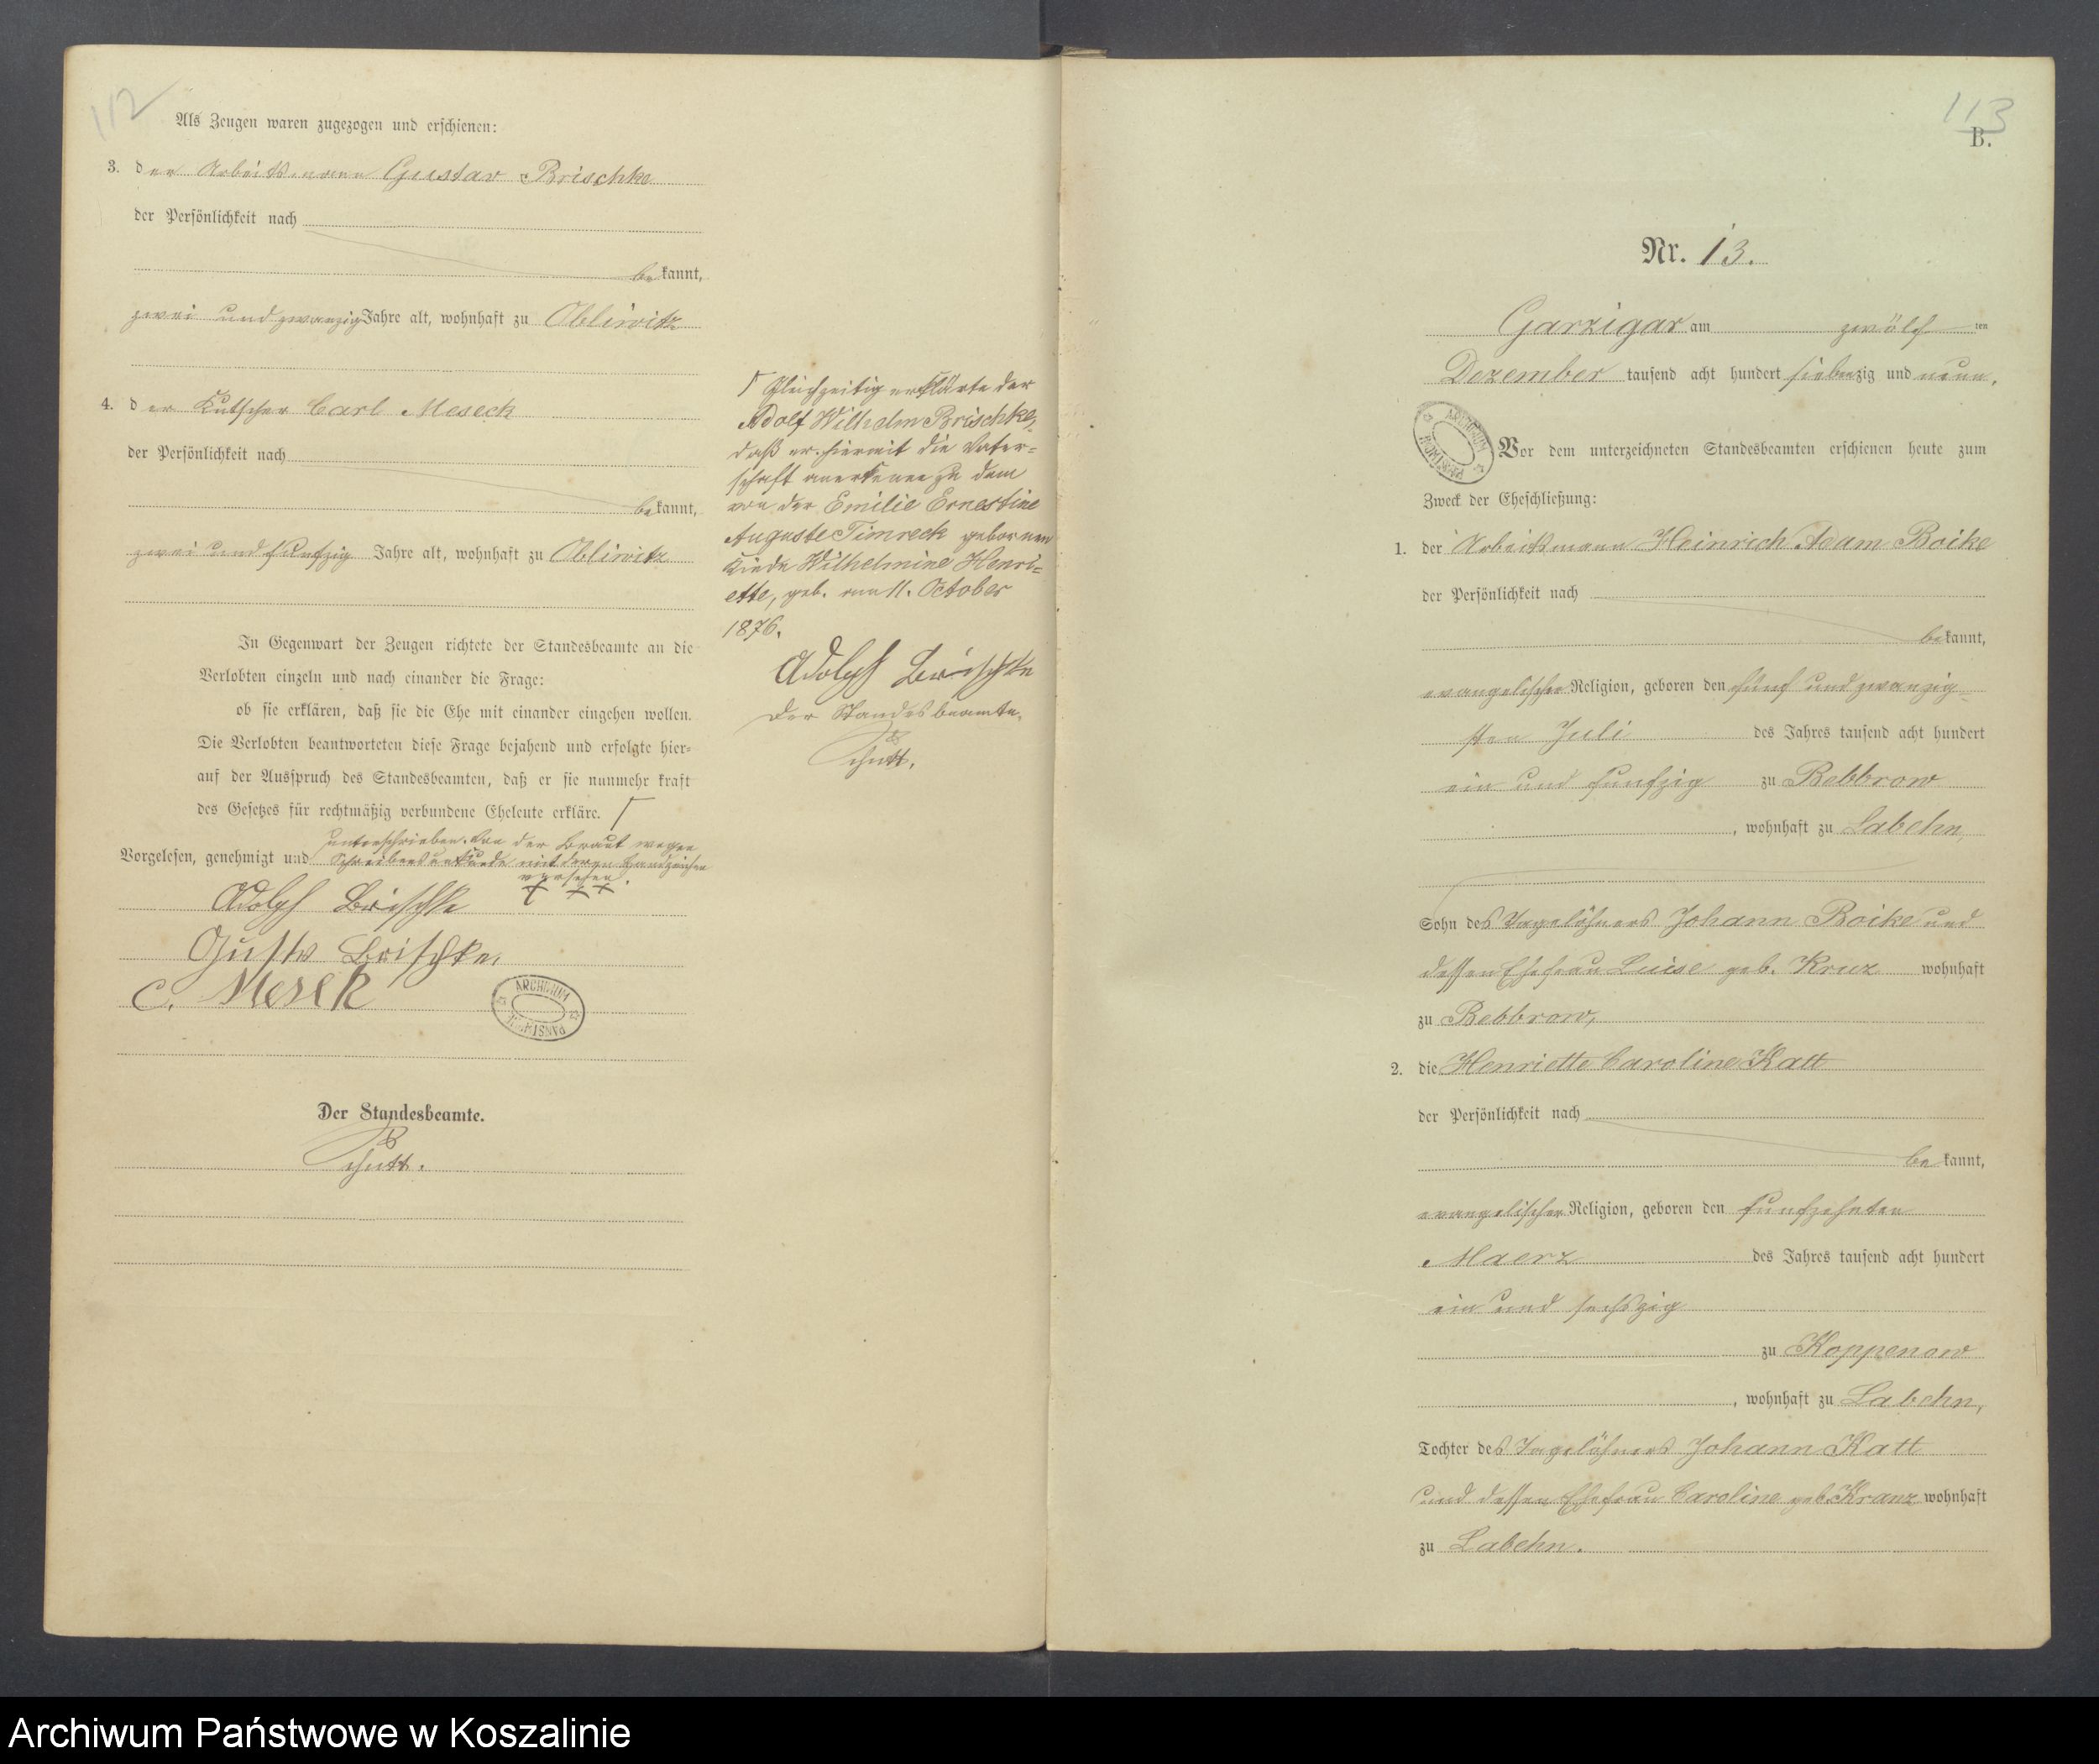 112
Als Zeugen waren zugezogen und erschienen:
3. der Arbeitsmann Gustav Brischke
der Persönlichkeit nach
bekannt,
zwei und zwanzig Jahre alt, wohnhaft zu Obliwitz
4. der Kutscher Carl Meseck
der Persönlichkeit nach
bekannt,
zwei und funfzig Jahre alt, wohnhaft zu Obliwitz
In Gegenwart der Zeugen richtete der Standesbeamte an die
Verlobten einzeln und nach einander die Frage:
ob sie erklären, daß sie die Ehe mit einander eingehen wollen.
Die Verlobten beantworteten diese Frage bejahend und erfolgte hier-
auf der Ausspruch des Standesbeamten, daß er sie nunmehr kraft
des Gesetzes für rechtmäßig verbundene Eheleute erkläre. Γ
unterschrieben. Von der Braut wegen
Vorgelesen, genehmigt und Schreibensunkunde mit deren Handzeichen
versehen.
+ + +
Adolph Brischke
Gustav Brischke.
C. Mesek
ARCHIVUM
Der Standesbeamte.
Schutt.
Γ Gleichzeitig erklärte der
Adolf Wilhelm Brischke,
daß er hiermit die Vater-
schaft anerkenne zu dem
von der Emilie Ernestine
Auguste Timreck gebornen
Kinde Wilhelmine Henri-
ette, geb. am 11. October
1876.
Adolph Brischke
Der Standesbeamte.
Schutt.
113
B.
Nr. 13.
Garzigar am zwölf ten
Dezember tausend acht hundert siebenzig und neun.
ARCHIVUM
Vor dem unterzeichneten Standesbeamten erschienen heute zum
Zweck der Eheschließung:
1. der Arbeitsmann Heinrich Adam Boike
der Persönlichkeit nach
bekannt,
evangelischer Religion, geboren den fünf und zwanzig-
sten Juli des Jahres tausend acht hundert
ein und funfzig zu Bebbrow
, wohnhaft zu Labehn,
Sohn des Tagelöhners Johann Boike und
dessen Ehefrau Luise geb. Kruz wohnhaft
zu Bebbrow,
2. die Henriette Caroline Katt
der Persönlichkeit nach
bekannt,
evangelischer Religion, geboren den funfzehnten
Maerz des Jahres tausend acht hundert
ein und sechszig
zu Koppenow
, wohnhaft zu Labehn,
Tochter des Tagelöhners Johann Katt
und dessen Ehefrau Caroline geb. Kranz wohnhaft
zu Labehn.
Archiwum Państwowe w Koszalinie